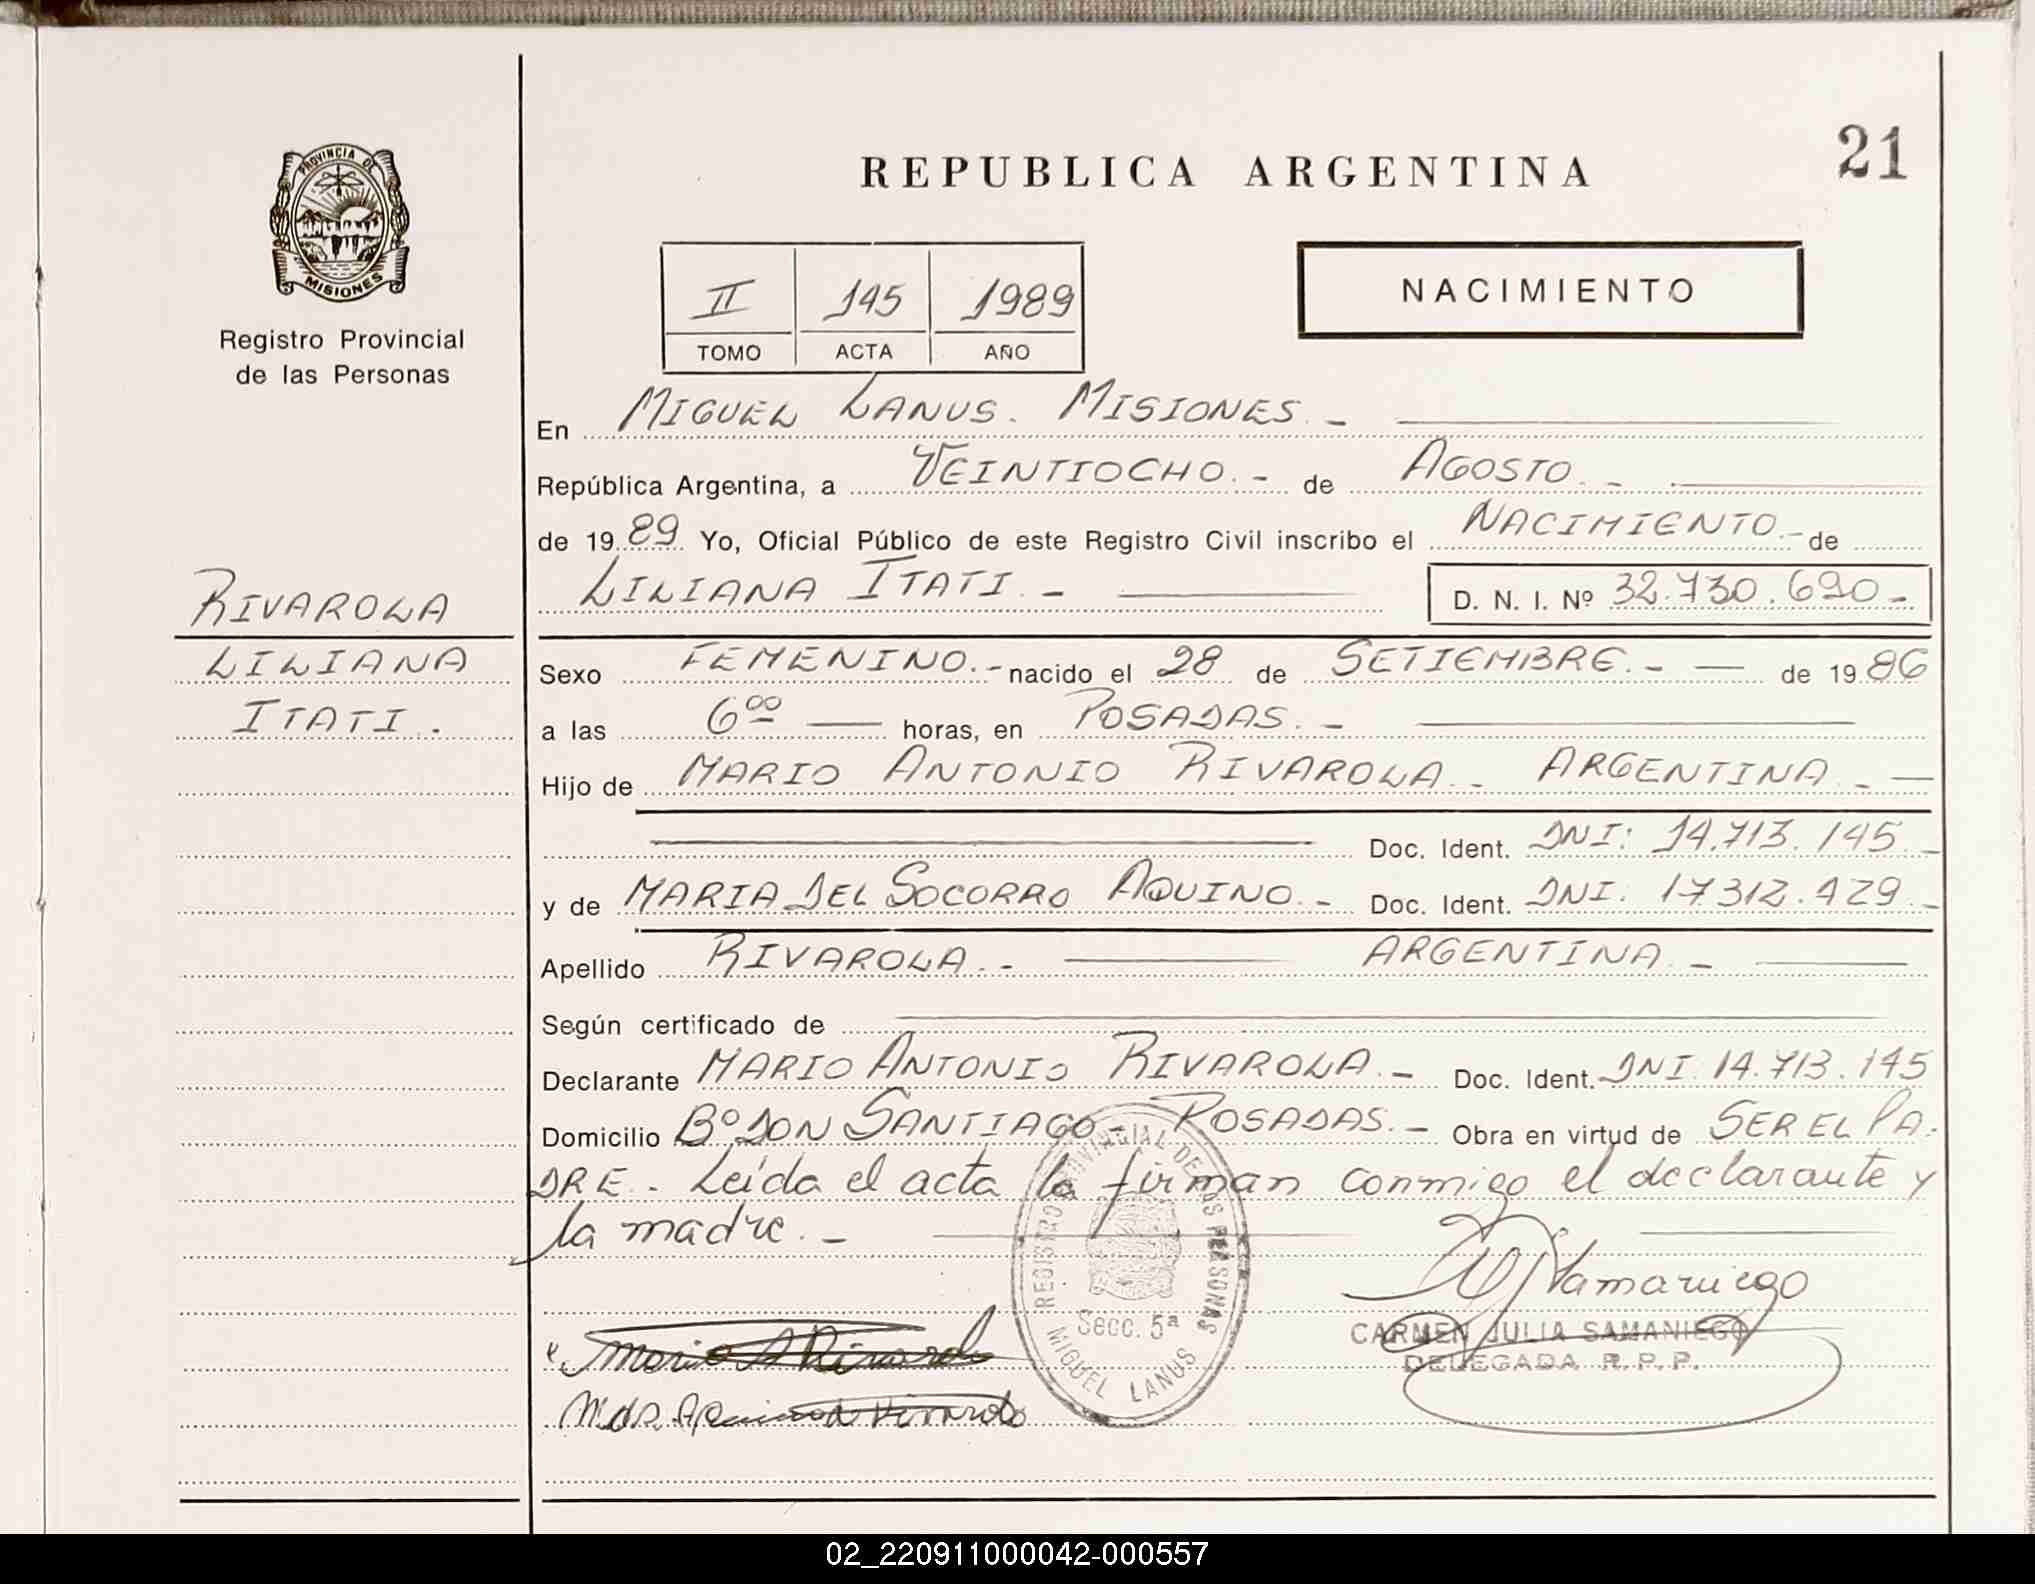 21
REPUBLICA ARGENTINA
PROVINCIA DE
MISIONES
Registro Provincial
de las Personas
NACIMIENTO
II 145 1989
TOMO ACTA AÑO
En MIGUEL LANUS. MISIONES.-
República Argentina, a VEINTIOCHO.- de AGOSTO.-
de 1989 Yo, Oficial Público de este Registro Civil inscribo el NACIMIENTO.- de
LILIANA ITATI.- D. N. I. Nº 32.730.690-
RIVAROLA
LILIANA
ITATI.
Sexo FEMENINO.- nacido el 28 de SETIEMBRE.- de 1986
a las 6⁰⁰ horas, en POSADAS.-
Hijo de MARIO ANTONIO RIVAROLA.- ARGENTINA.-
Doc. Ident. DNI: 14.713.145.-
y de MARIA DEL SOCORRO AQUINO.- Doc. Ident. DNI. 17312.429.-
Apellido RIVAROLA.- ARGENTINA.-
Según certificado de
Declarante MARIO ANTONIO RIVAROLA.- Doc. Ident. DNI. 14.713.145
Domicilio Bº DON SANTIAGO- POSADAS.- Obra en virtud de SER EL PA-
DRE.- Leída el acta la firman conmigo el declarante y
la madre.-
REGISTRO PROVINCIAL DE LAS PERSONAS
Secc. 5ª
MIGUEL LANUS
Samaniego
CARMEN JULIA SAMANIEGO
DELEGADA R.P.P.
Mario A Rivarola
02_220911000042-000557